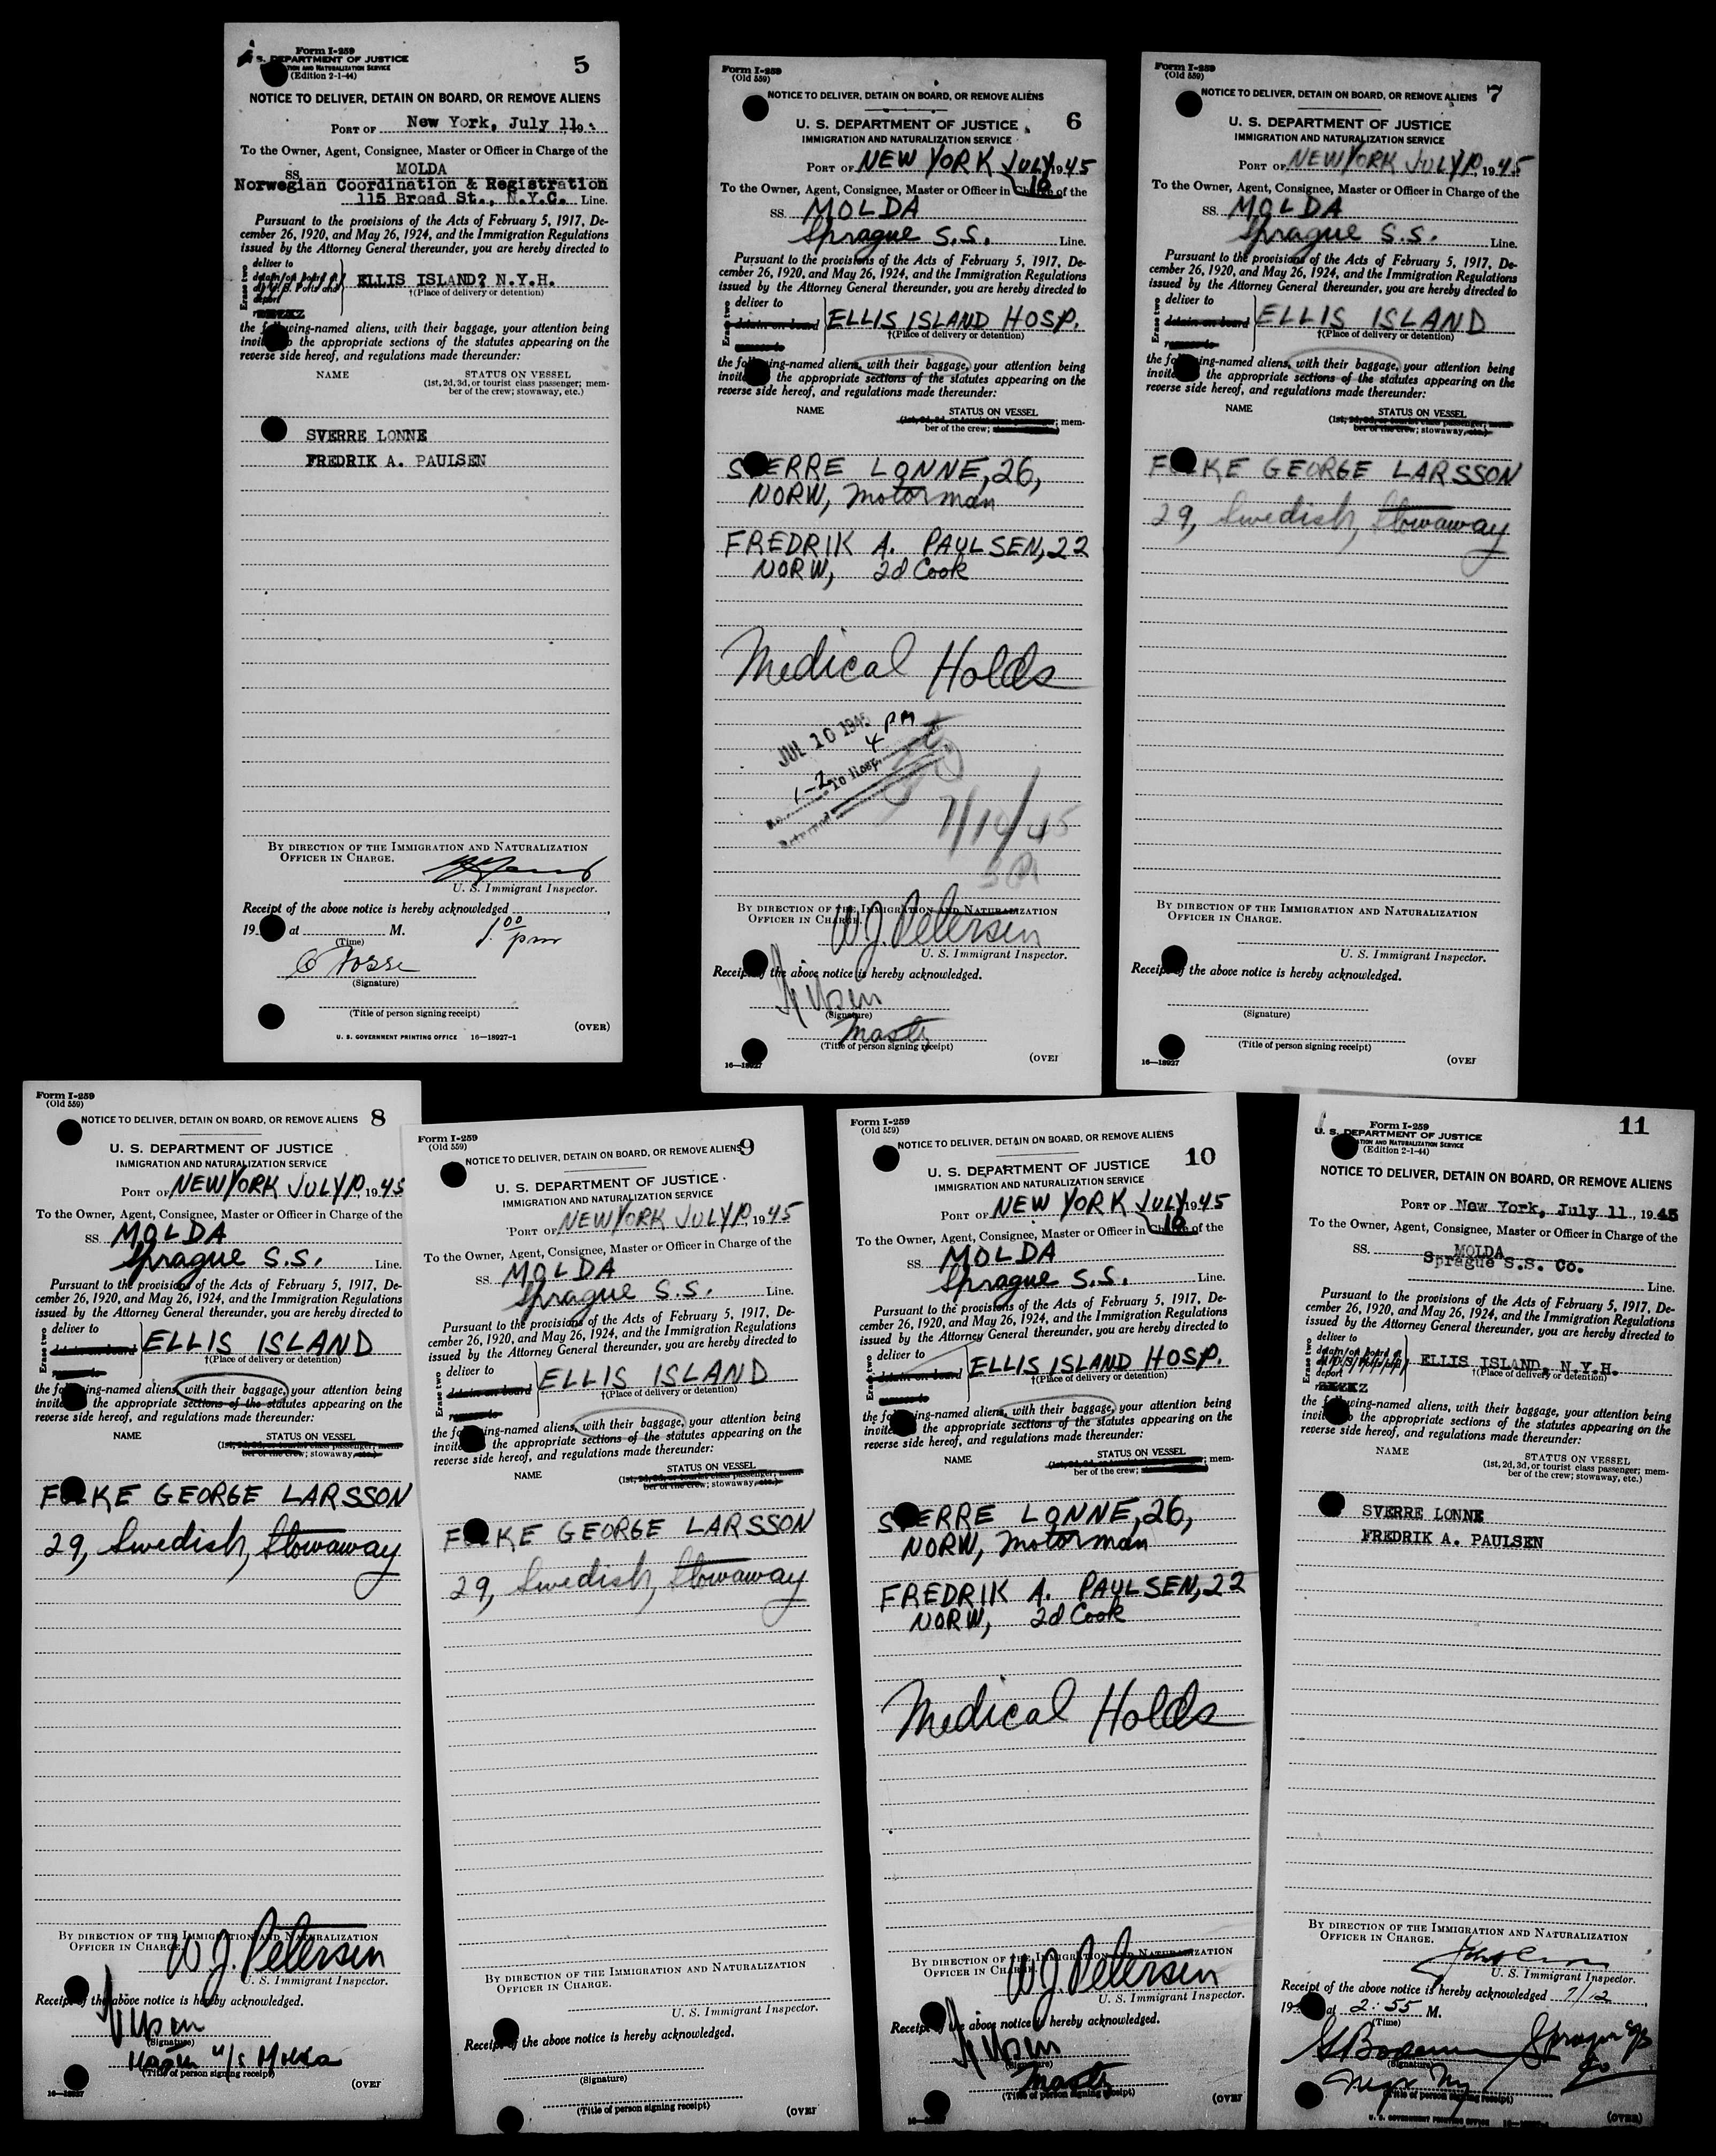 Form I-259
U. S. DEPARTMENT OF JUSTICE
IMMIGRATION AND NATURALIZATION SERVICE
(Edition 2-1-44)
5
NOTICE TO DELIVER, DETAIN ON BOARD, OR REMOVE ALIENS
PORT OF New York, July 11, 19
To the Owner, Agent, Consignee, Master or Officer in Charge of the
SS. MOLDA
Norwegian Coordination & Registration
115 Broad St., N.Y.C. Line.
Pursuant to the provisions of the Acts of February 5, 1917, De-
cember 26, 1920, and May 26, 1924, and the Immigration Regulations
issued by the Attorney General thereunder, you are hereby directed to
Erase two
deliver to
detain on board at
deport
ELLIS ISLAND? N.Y.H.
†(Place of delivery or detention)
the following-named aliens, with their baggage, your attention being
invited to the appropriate sections of the statutes appearing on the
reverse side hereof, and regulations made thereunder:
NAME STATUS ON VESSEL
(1st, 2d, 3d, or tourist class passenger; mem-
ber of the crew; stowaway, etc.)
SVERRE LONNE
FREDRIK A. PAULSEN
BY DIRECTION OF THE IMMIGRATION AND NATURALIZATION
OFFICER IN CHARGE.
U. S. Immigrant Inspector.
Receipt of the above notice is hereby acknowledged
19 at M. 1 00 pm
(Time)
(Signature)
(Title of person signing receipt)
(OVER)
U. S. GOVERNMENT PRINTING OFFICE 16—18927-1
Form I-259
(Old 559)
NOTICE TO DELIVER, DETAIN ON BOARD, OR REMOVE ALIENS
U. S. DEPARTMENT OF JUSTICE 6
IMMIGRATION AND NATURALIZATION SERVICE
PORT OF NEW YORK JULY 10 1945
To the Owner, Agent, Consignee, Master or Officer in Charge of the
SS. MOLDA
Sprague S.S. Line.
Pursuant to the provisions of the Acts of February 5, 1917, De-
cember 26, 1920, and May 26, 1924, and the Immigration Regulations
issued by the Attorney General thereunder, you are hereby directed to
Erase two
deliver to
detain on board
remove to
ELLIS ISLAND HOSP.
†(Place of delivery or detention)
the following-named aliens, with their baggage, your attention being
invited to the appropriate sections of the statutes appearing on the
reverse side hereof, and regulations made thereunder:
NAME STATUS ON VESSEL
(1st, 2d, 3d, or tourist class passenger; mem-
ber of the crew; stowaway, etc.)
SVERRE LONNE, 26,
NORW, Motorman
FREDRIK A. PAULSEN, 22
NORW, 2d Cook
Medical Holds
JUL 10 1945 4 PM
1-2 To Hosp.
Returned
7/10/45
BY DIRECTION OF THE IMMIGRATION AND NATURALIZATION
OFFICER IN CHARGE.
W. J. Petersen
U. S. Immigrant Inspector.
Receipt of the above notice is hereby acknowledged.
(Signature)
Master
(Title of person signing receipt)
16—18927 (OVER
Form I-259
(Old 559)
NOTICE TO DELIVER, DETAIN ON BOARD, OR REMOVE ALIENS 7
U. S. DEPARTMENT OF JUSTICE
IMMIGRATION AND NATURALIZATION SERVICE
PORT OF NEW YORK JULY 10, 1945
To the Owner, Agent, Consignee, Master or Officer in Charge of the
SS. MOLDA
Sprague S.S. Line.
Pursuant to the provisions of the Acts of February 5, 1917, De-
cember 26, 1920, and May 26, 1924, and the Immigration Regulations
issued by the Attorney General thereunder, you are hereby directed to
Erase two
deliver to
detain on board
remove to
ELLIS ISLAND
†(Place of delivery or detention)
the following-named aliens, with their baggage, your attention being
invited to the appropriate sections of the statutes appearing on the
reverse side hereof, and regulations made thereunder:
NAME STATUS ON VESSEL
(1st, 2d, 3d, or tourist class passenger; mem-
ber of the crew; stowaway, etc.)
FOLKE GEORGE LARSSON
29, Swedish, Stowaway
BY DIRECTION OF THE IMMIGRATION AND NATURALIZATION
OFFICER IN CHARGE.
U. S. Immigrant Inspector.
Receipt of the above notice is hereby acknowledged.
(Signature)
(Title of person signing receipt)
16—18927 (OVER
Form I-259
(Old 559)
NOTICE TO DELIVER, DETAIN ON BOARD, OR REMOVE ALIENS 8
U. S. DEPARTMENT OF JUSTICE
IMMIGRATION AND NATURALIZATION SERVICE
PORT OF NEW YORK JULY 10, 1945
To the Owner, Agent, Consignee, Master or Officer in Charge of the
SS. MOLDA
Sprague S.S. Line.
Pursuant to the provisions of the Acts of February 5, 1917, De-
cember 26, 1920, and May 26, 1924, and the Immigration Regulations
issued by the Attorney General thereunder, you are hereby directed to
Erase two
deliver to
detain on board
remove to
ELLIS ISLAND
†(Place of delivery or detention)
the following-named aliens, with their baggage, your attention being
invited to the appropriate sections of the statutes appearing on the
reverse side hereof, and regulations made thereunder:
NAME STATUS ON VESSEL
(1st, 2d, 3d, or tourist class passenger; mem-
ber of the crew; stowaway, etc.)
FOLKE GEORGE LARSSON
29, Swedish, Stowaway
BY DIRECTION OF THE IMMIGRATION AND NATURALIZATION
OFFICER IN CHARGE.
W. J. Petersen
U. S. Immigrant Inspector.
Receipt of the above notice is hereby acknowledged.
(Signature)
Master M/S Molda
(Title of person signing receipt)
16—18927 (OVER
Form I-259
(Old 559)
NOTICE TO DELIVER, DETAIN ON BOARD, OR REMOVE ALIENS 9
U. S. DEPARTMENT OF JUSTICE
IMMIGRATION AND NATURALIZATION SERVICE
PORT OF NEW YORK JULY 10 1945
To the Owner, Agent, Consignee, Master or Officer in Charge of the
SS. MOLDA
Sprague S.S. Line.
Pursuant to the provisions of the Acts of February 5, 1917, De-
cember 26, 1920, and May 26, 1924, and the Immigration Regulations
issued by the Attorney General thereunder, you are hereby directed to
Erase two
deliver to
detain on board
remove to
ELLIS ISLAND
†(Place of delivery or detention)
the following-named aliens, with their baggage, your attention being
invited to the appropriate sections of the statutes appearing on the
reverse side hereof, and regulations made thereunder:
NAME STATUS ON VESSEL
(1st, 2d, 3d, or tourist class passenger; mem-
ber of the crew; stowaway, etc.)
FOLKE GEORGE LARSSON
29, Swedish, Stowaway
BY DIRECTION OF THE IMMIGRATION AND NATURALIZATION
OFFICER IN CHARGE.
U. S. Immigrant Inspector.
Receipt of the above notice is hereby acknowledged.
(Signature)
(Title of person signing receipt)
(OVER
Form I-259
(Old 559)
NOTICE TO DELIVER, DETAIN ON BOARD, OR REMOVE ALIENS
U. S. DEPARTMENT OF JUSTICE 10
IMMIGRATION AND NATURALIZATION SERVICE
PORT OF NEW YORK JULY 10 1945
To the Owner, Agent, Consignee, Master or Officer in Charge of the
SS. MOLDA
Sprague S.S. Line.
Pursuant to the provisions of the Acts of February 5, 1917, De-
cember 26, 1920, and May 26, 1924, and the Immigration Regulations
issued by the Attorney General thereunder, you are hereby directed to
Erase two
deliver to
detain on board
remove to
ELLIS ISLAND HOSP.
†(Place of delivery or detention)
the following-named aliens, with their baggage, your attention being
invited to the appropriate sections of the statutes appearing on the
reverse side hereof, and regulations made thereunder:
NAME STATUS ON VESSEL
(1st, 2d, 3d, or tourist class passenger; mem-
ber of the crew; stowaway, etc.)
SVERRE LONNE, 26,
NORW, Motorman
FREDRIK A. PAULSEN, 22
NORW, 2d Cook
Medical Holds
BY DIRECTION OF THE IMMIGRATION AND NATURALIZATION
OFFICER IN CHARGE.
W. J. Petersen
U. S. Immigrant Inspector.
Receipt of the above notice is hereby acknowledged.
(Signature)
Master
(Title of person signing receipt)
16—18927 (OVER
Form I-259
U. S. DEPARTMENT OF JUSTICE
IMMIGRATION AND NATURALIZATION SERVICE
(Edition 2-1-44)
11
NOTICE TO DELIVER, DETAIN ON BOARD, OR REMOVE ALIENS
PORT OF New York, July 11, 1945
To the Owner, Agent, Consignee, Master or Officer in Charge of the
SS. MOLDA
Sprague S.S. Co.
Line.
Pursuant to the provisions of the Acts of February 5, 1917, De-
cember 26, 1920, and May 26, 1924, and the Immigration Regulations
issued by the Attorney General thereunder, you are hereby directed to
Erase two
deliver to
detain on board at
deport
ELLIS ISLAND, N.Y.H.
†(Place of delivery or detention)
the following-named aliens, with their baggage, your attention being
invited to the appropriate sections of the statutes appearing on the
reverse side hereof, and regulations made thereunder:
NAME STATUS ON VESSEL
(1st, 2d, 3d, or tourist class passenger; mem-
ber of the crew; stowaway, etc.)
SVERRE LONNE
FREDRIK A. PAULSEN
BY DIRECTION OF THE IMMIGRATION AND NATURALIZATION
OFFICER IN CHARGE.
U. S. Immigrant Inspector.
Receipt of the above notice is hereby acknowledged 7/12,
19 at 2:55 M.
(Time)
(Signature)
(Title of person signing receipt)
U. S. GOVERNMENT PRINTING OFFICE 16—18927-1 (OVER)